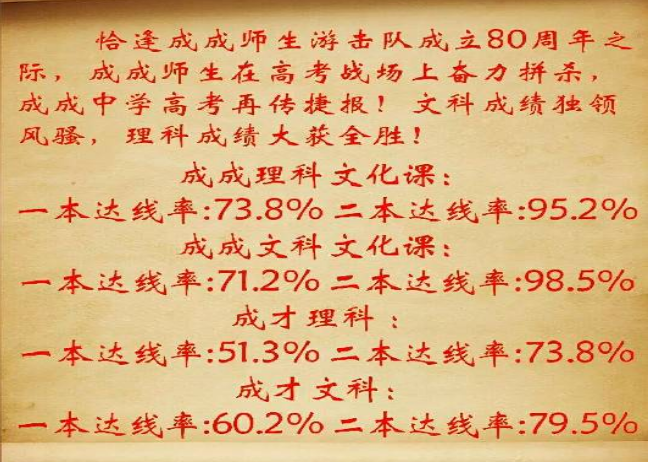 恰逢成成师生游击队成立80周年之
际，成成师生在高考战场上奋力拼杀，
成成中学高考再传捷报！文科成绩独领
风骚，理科成绩大获全胜！
成成理科文化课：
一本达线率:73.8% 二本达线率:95.2%
成成文科文化课：
一本达线率:71.2% 二本达线率:98.5%
成才理科：
一本达线率:51.3% 二本达线率:73.8%
成才文科：
一本达线率:60.2% 二本达线率:79.5%